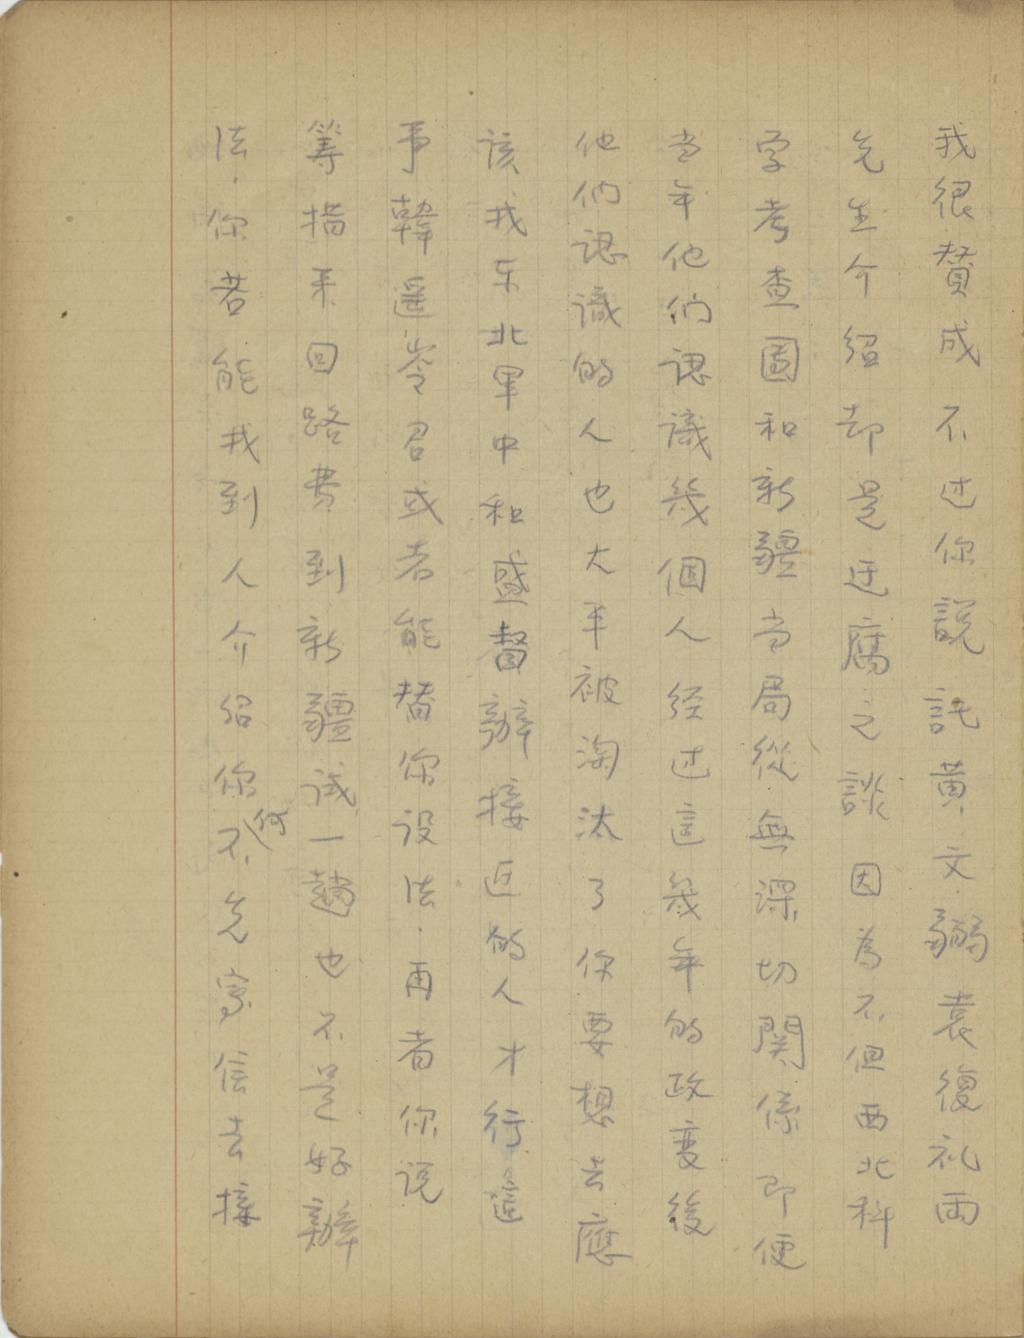 我很賛成 不过你說託黄文弼袁復礼両
先生介紹却是迂腐之談 因為不但西北科
学考查團和新疆当局從無深切関係即便
当年他们認識幾個人经过這幾年的政変後
他们認識的人也大半被淘汰了你要想去應
该找东北軍中和盛督辦接近的人才行這
事韓遥岺君或者能替你设法．再者你说
筹措来回路費到新疆试一趟也不是好辦
法．你若能找到人介绍你何不先写信去接